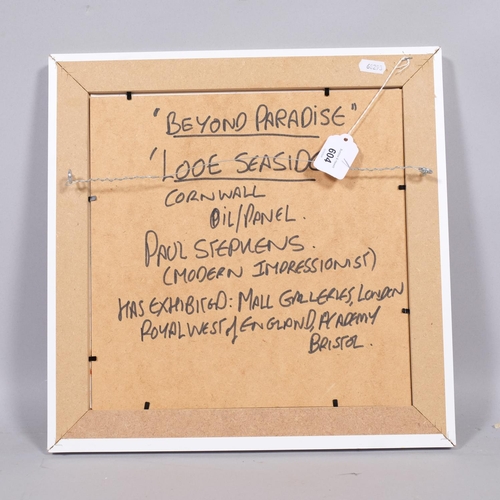 "BEYOND PARADISE"
'LOOE SEASID
CORNWALL
OIL/PANEL.
PAUL STEPHENS.
(MODERN IMPRESSIONIST)
HAS EXHIBITED: MALL GALLERIES, LONDON
ROYAL WEST of ENGLAND, ACADEMY
BRISTOL.
604